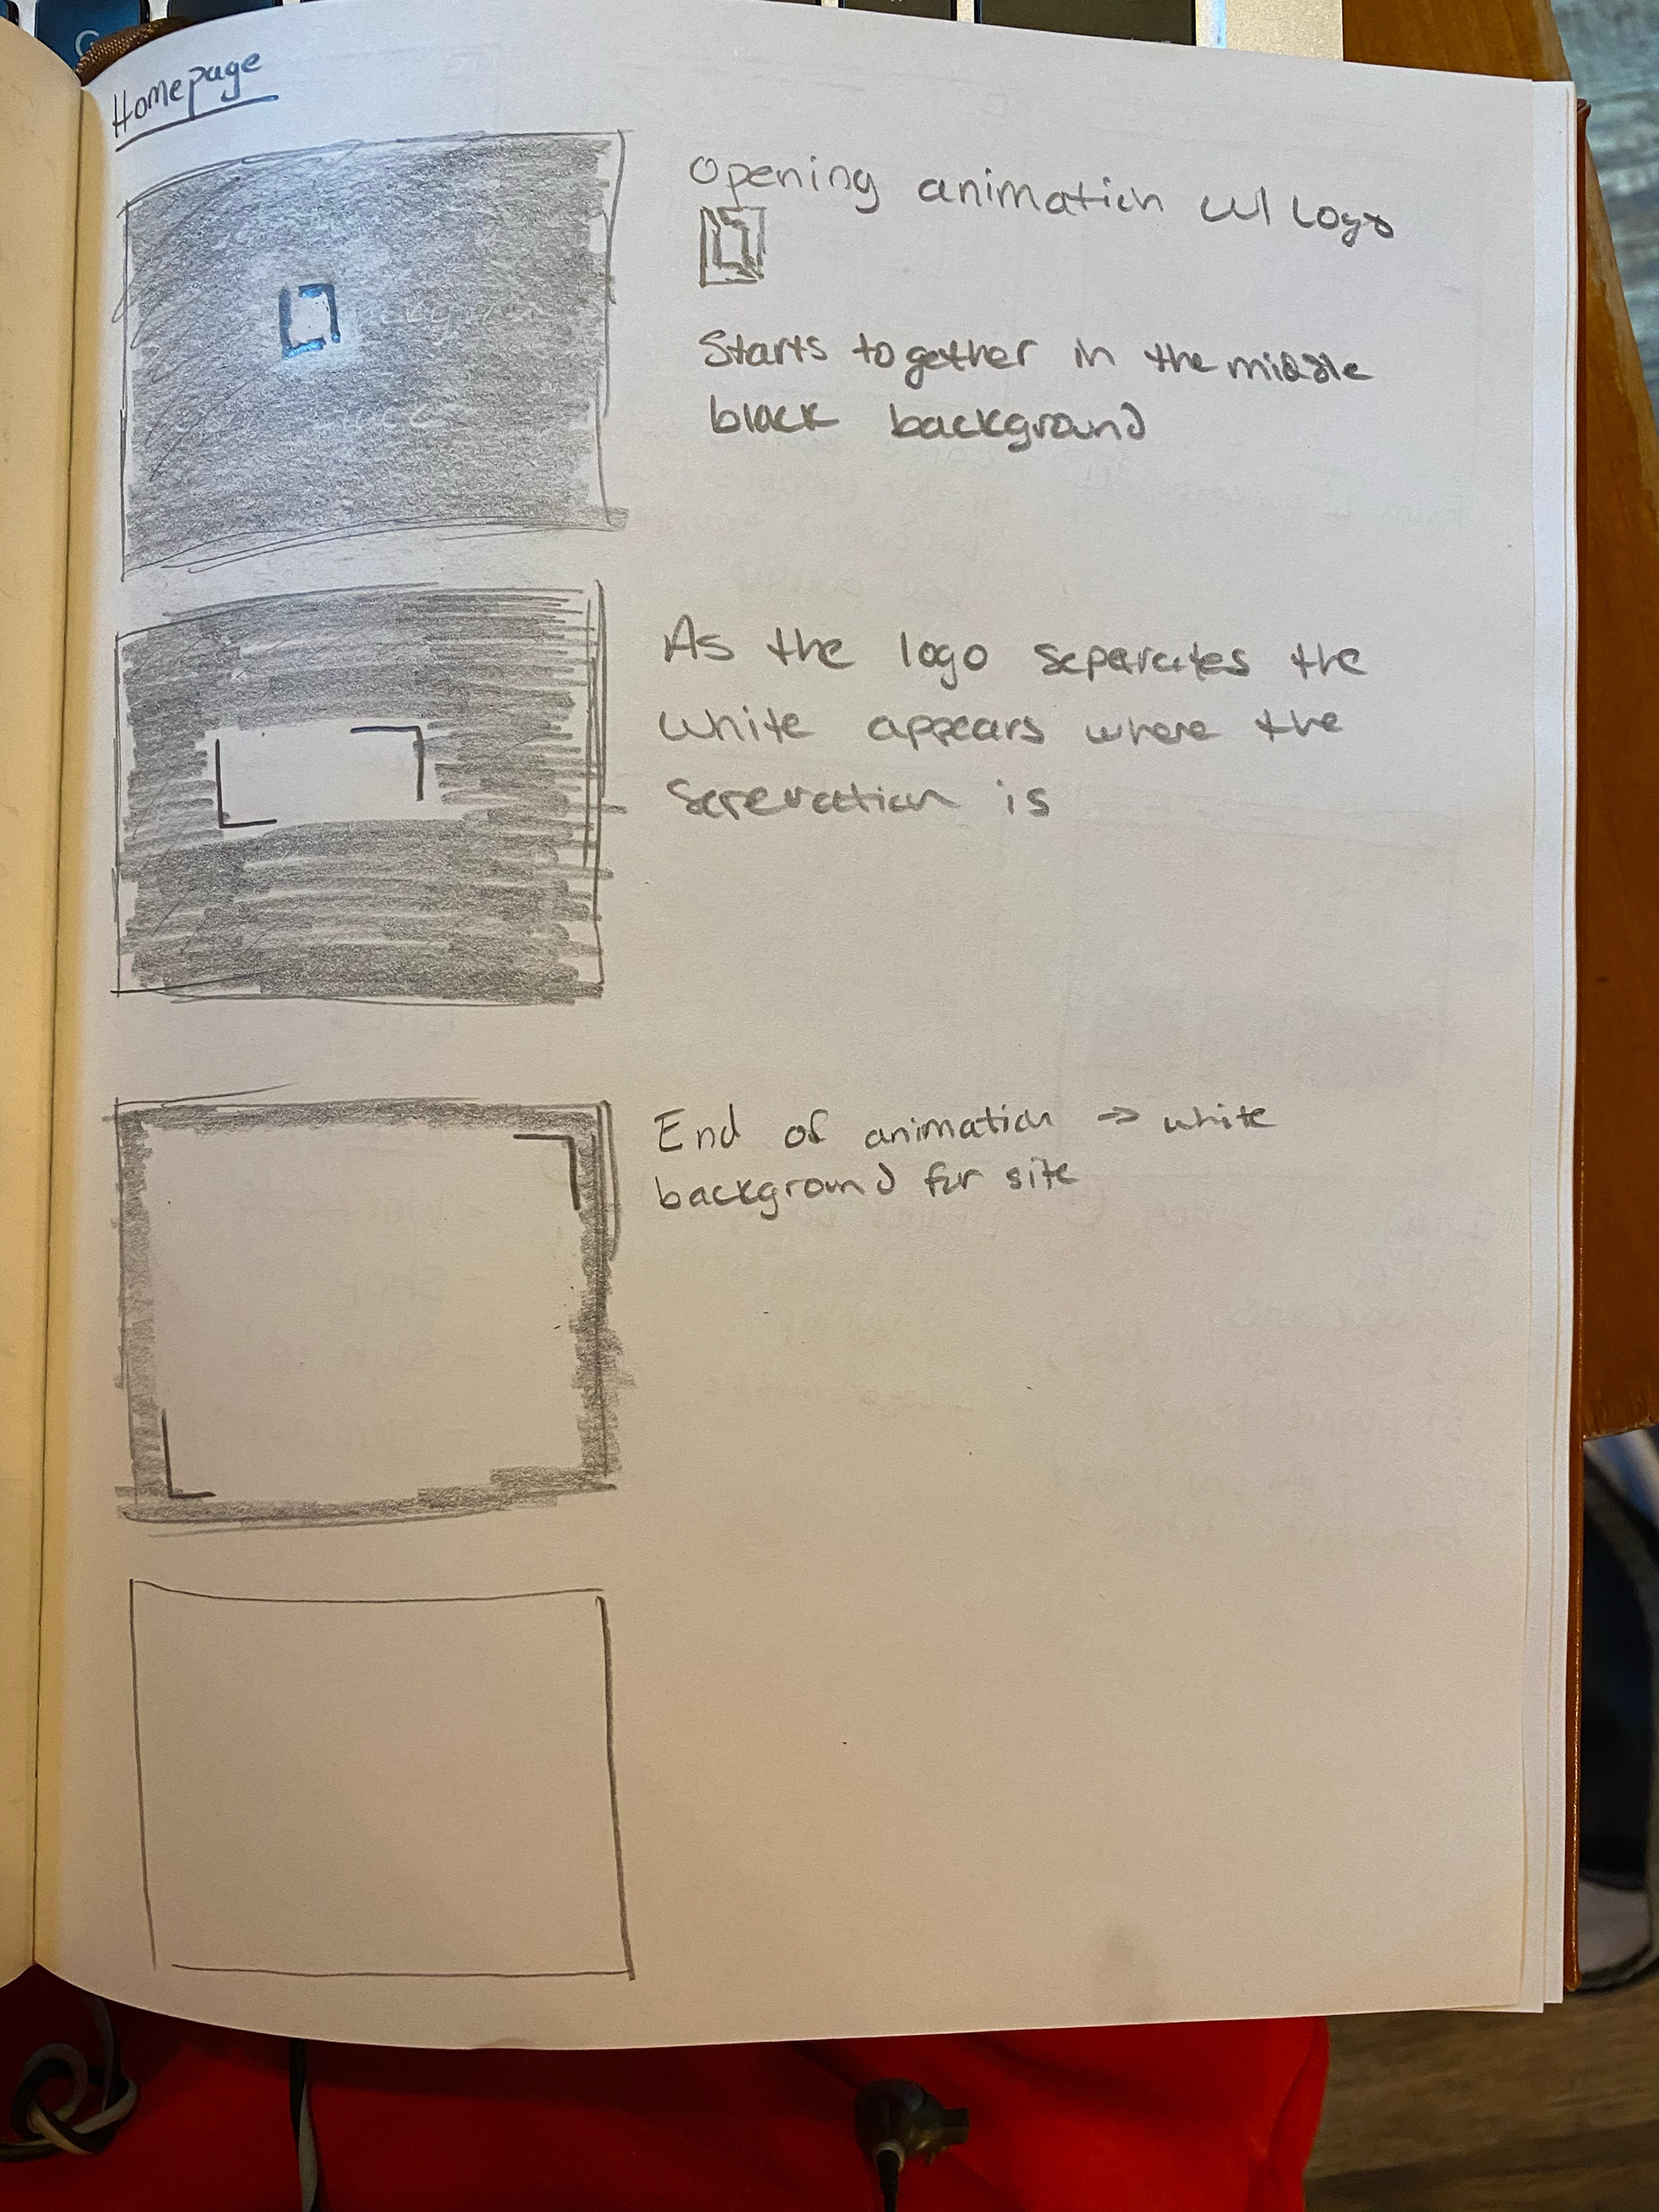 Homepage
Opening animation w/ logo
Starts together in the middle
black background
As the logo separates the
white appears where the
Sereration is
End of animation → white
background for site